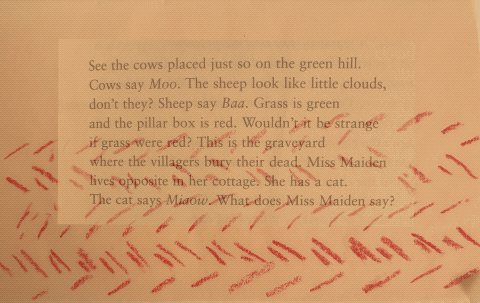 See the cows placed just so on the green hill.
Cows say Moo. The sheep look like little clouds,
don't they? Sheep say Baa. Grass is green
and the pillar box is red. Wouldn't it be strange
if grass were red? This is the graveyard
where the villagers bury their dead. Miss Maiden
lives opposite in her cottage. She has a cat.
The cat says Miaow. What does Miss Maiden say?